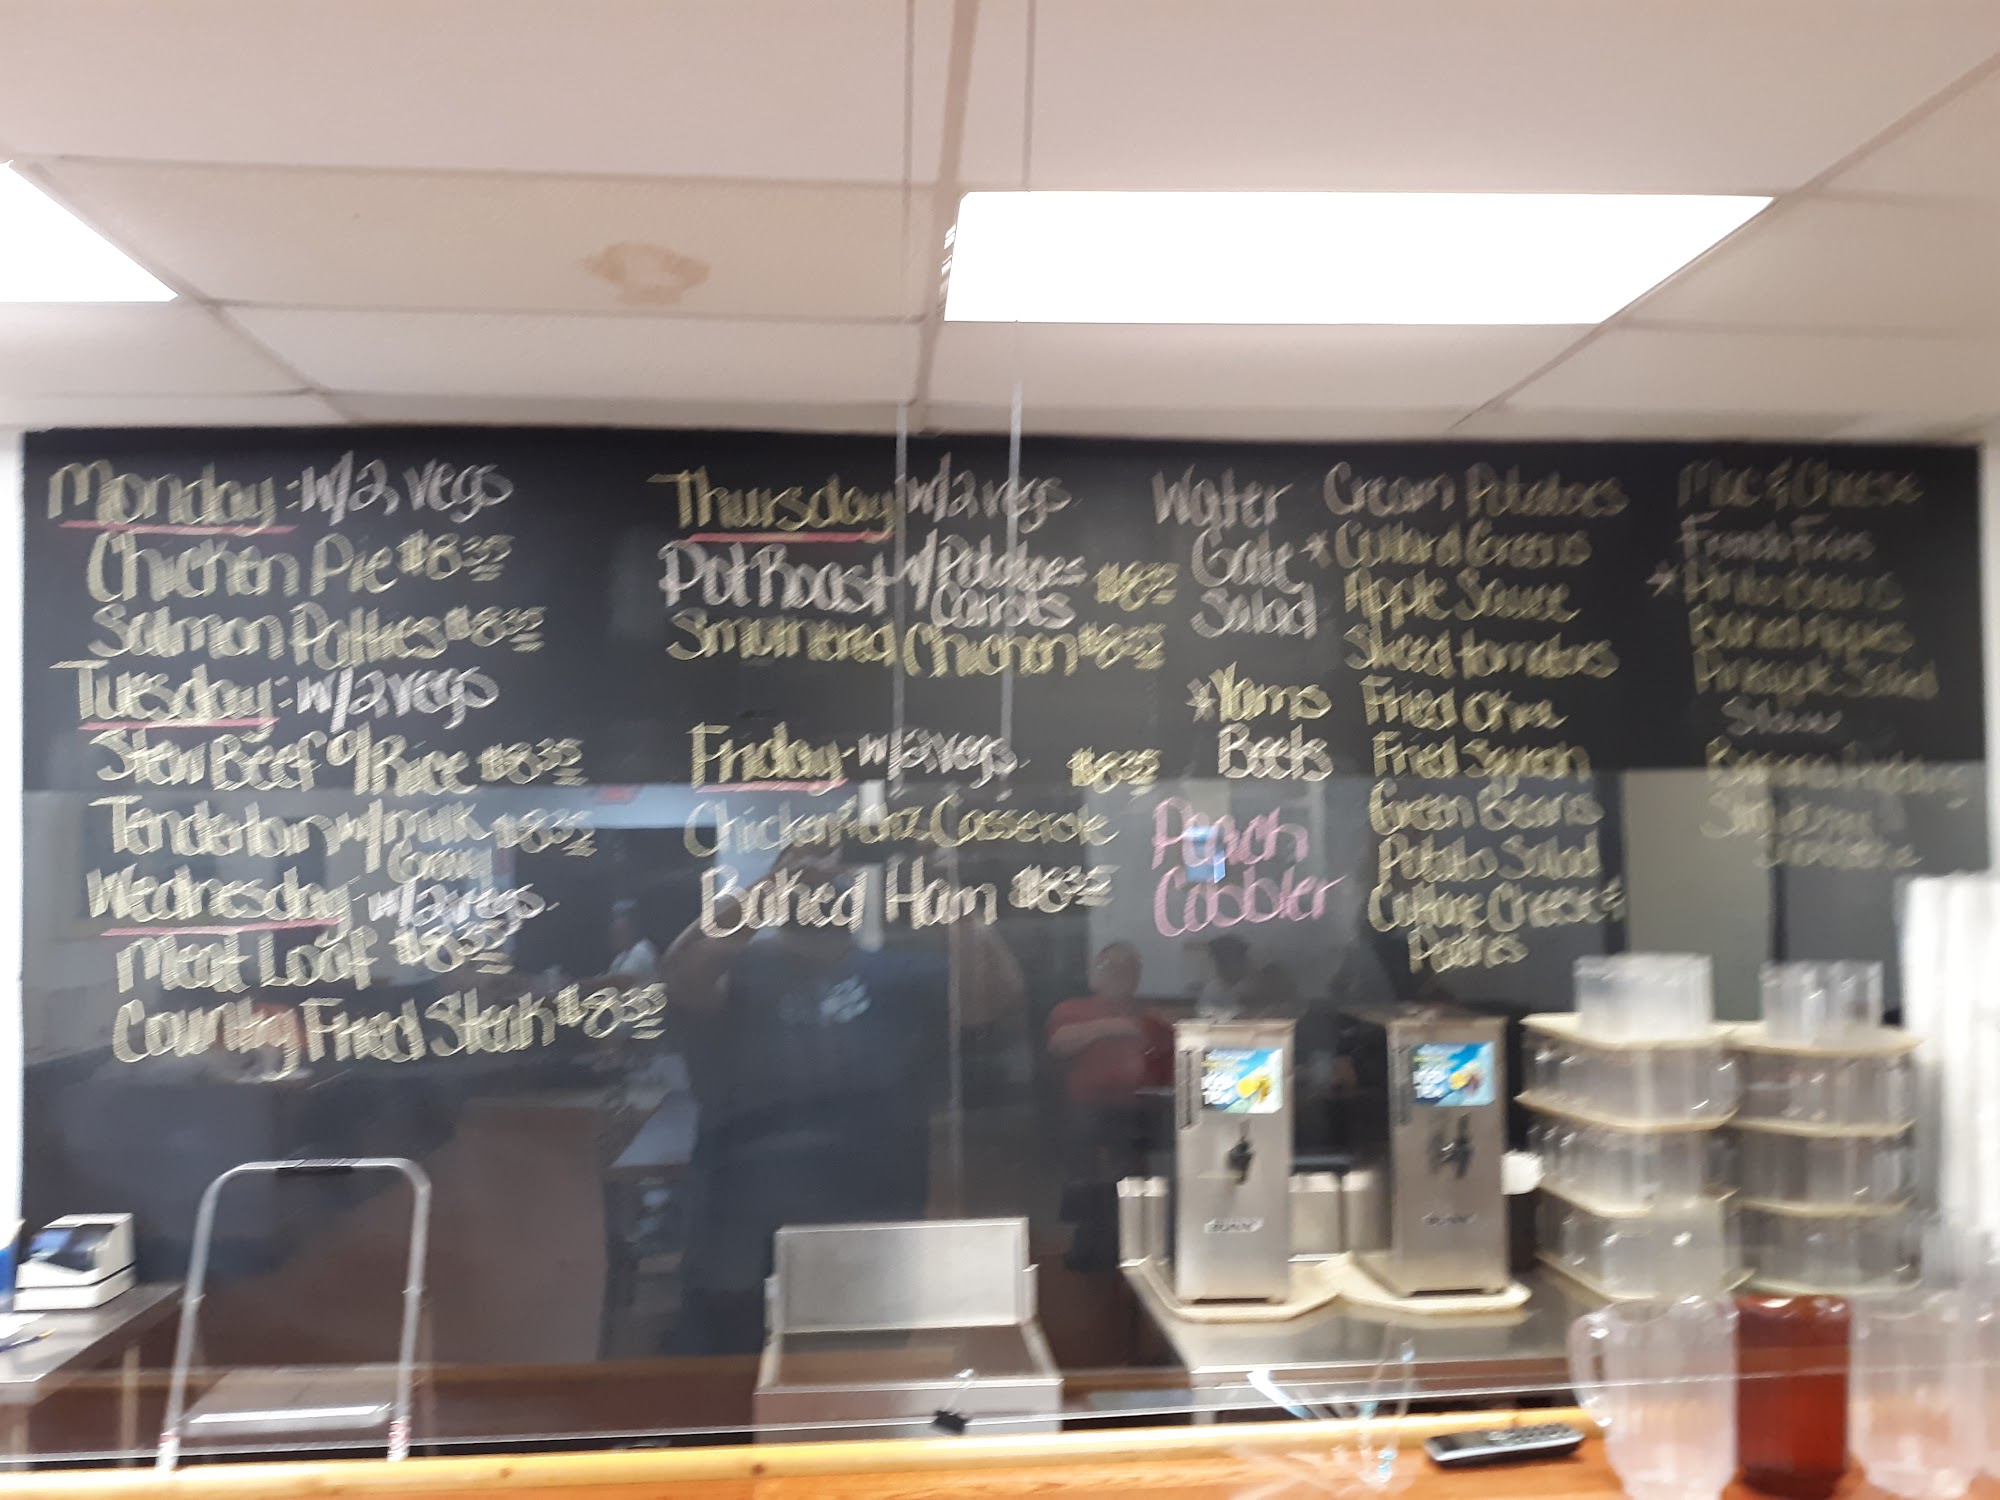 Monday: w/2 vegs
Chicken Pie $8.35
Salmon Patties $8.35
Tuesday: w/2 vegs
Stew Beef o/Rice $8.35
Tenderloin w/milk $8.35
Gravy
Wednesday w/2 vegs.
Meat Loaf $8.35
Country Fried Steak $8.35
Thursday w/2 vegs.
Pot Roast w/Potatoes $8.35
Carrots
Smothered Chicken $8.35
Friday w/2 vegs. $8.35
Casserole
Baked Ham $8.35
Water
Gate
Salad
*Yams
Beets
Peach
Cobbler
Cream Potatoes
*Collard Greens
Apple Sauce
Sliced tomatoes
Fried Okra
Fried Squash
Green Beans
Potato Salad
Cottage Cheese &
Peaches
Mac & Cheese
French Fries
*Pinto Beans
Baked Apples
Pineapple Salad
Slaw
Banana Pudding
Strawberry
ICED
TEA
ICED
TEA
BUNN
BUNN